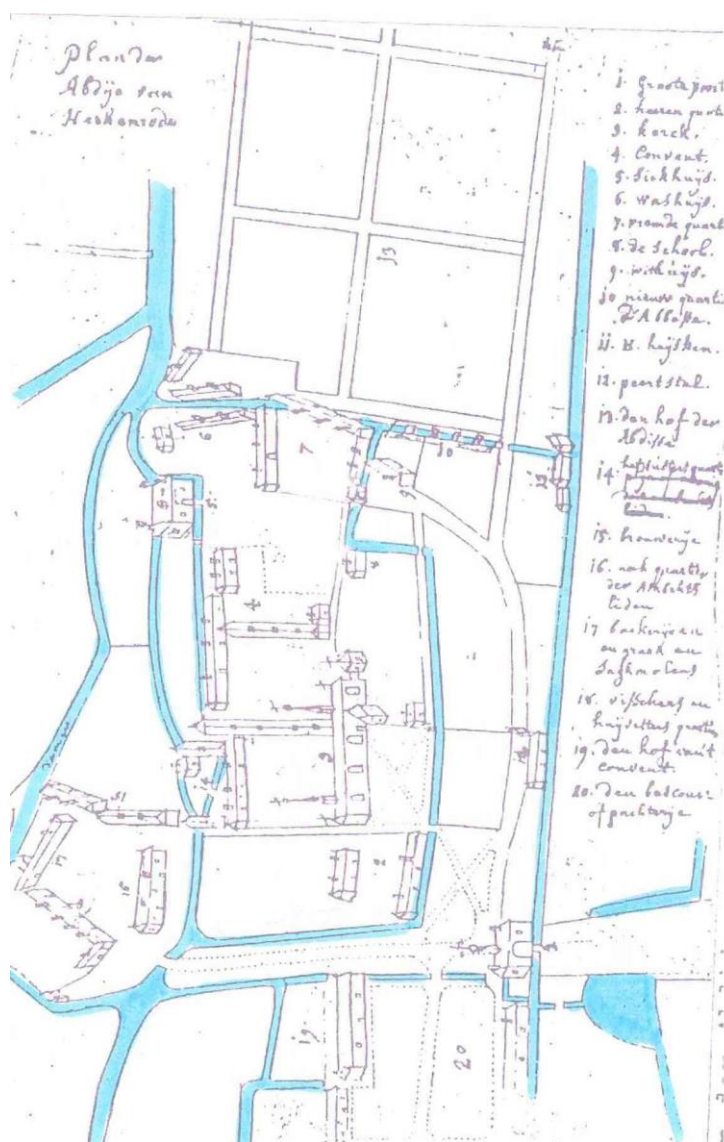 Plan der
Abdije van
Herkenrode
1. Groote poort
2. heeren quarti
3. kerck.
4. Convent.
5. Siekhuijs.
6. washuijs.
7. vremde quarti
8. de School.
9. withuijs.
10 nieuw quarti
D'Abbesse.
11. huijsken.
12. peertstal.
13. den hof der
Abdisse
14.
15. brouwerije
16. quartir
der Ambachts
lieden
17 backerije en
en graen en
Saghmolens
18. visschers en
huijsetters quartir
19. den hof van't
convent.
20. Den bascour
of pachterije
13
6
7
8
5
10
9
12
4
4
3
15
17
16
2
19
20